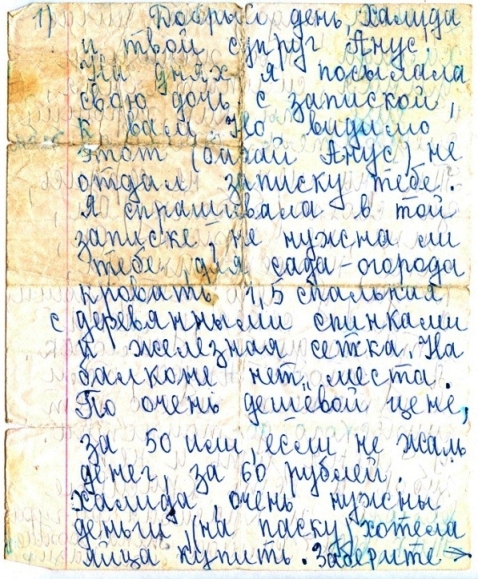 1) Добрый день, Халида
и твой супруг Анус.
На днях я посылала
свою дочь с запиской,
к вам. Но видимо
этот (бабай Анус) не
отдал записку тебе.
Я спрашивала в той
записке, не нужна ли
тебе для сада-огорода
кровать 1,5 спальная,
с деревянными спинками
и железная сетка. На
балконе нет места.
По очень дешёвой цене,
за 50 или, если не жаль
денег, за 60 рублей.
Халида, очень нужны
деньги, (на паску) хотела
яйца купить. Заберите →